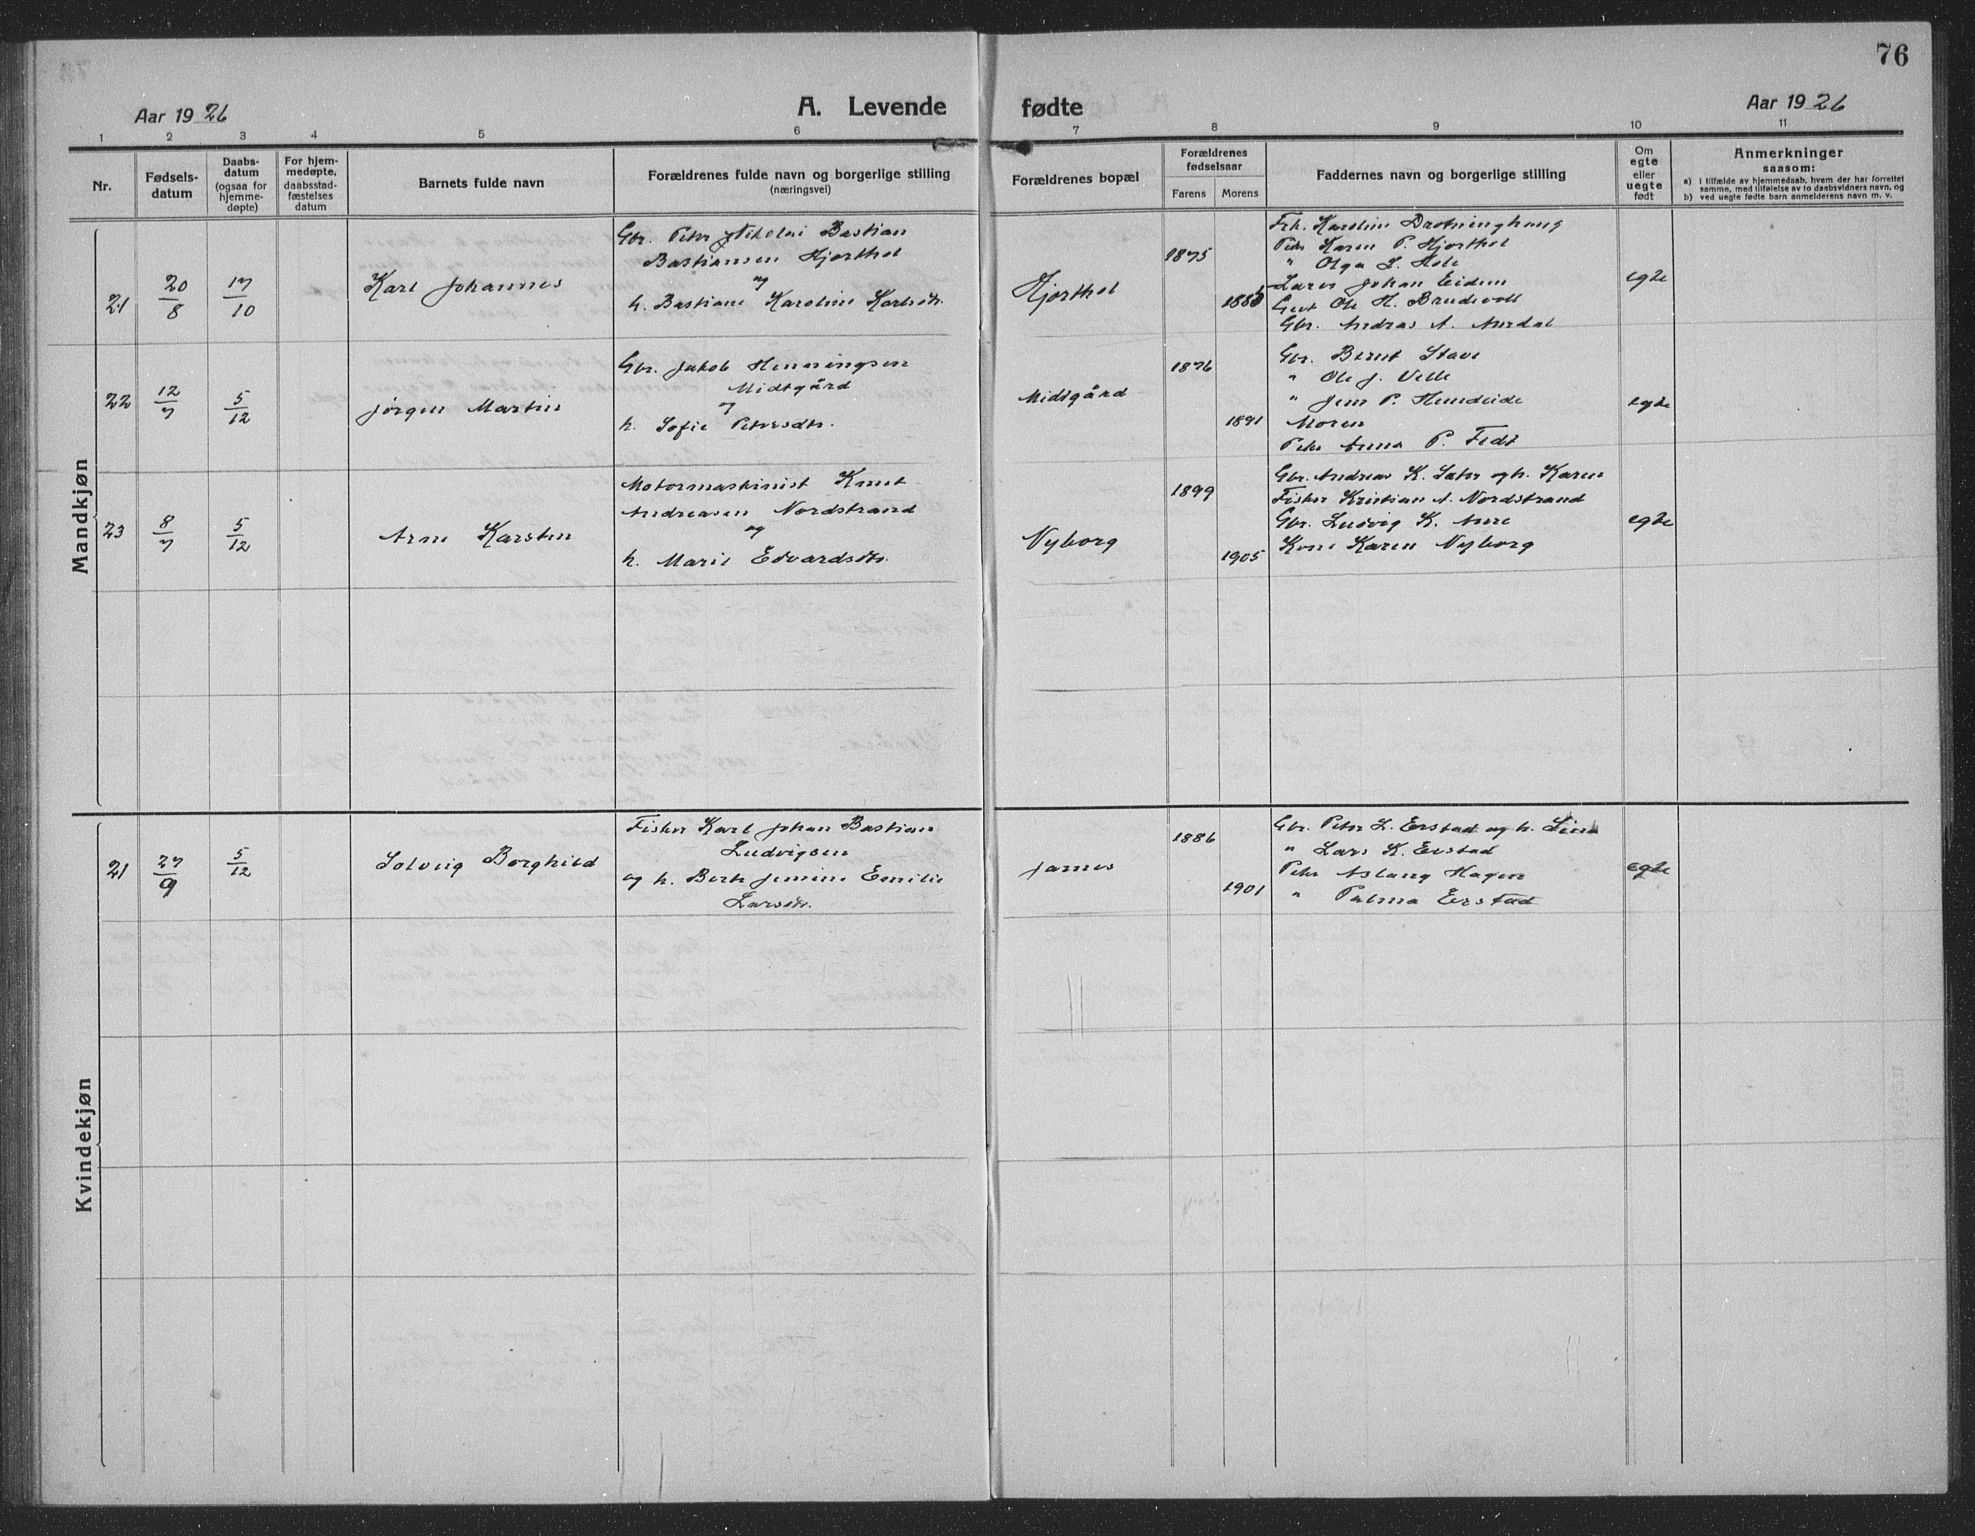 76
Aar 1926
A. Levende fødte
Aar 1926
1 2 3 4 5 6 7 8 9 10 11
Nr.
Fødsels-
datum
Daabs-
datum
(ogsaa for
hjemme-
døpte)
For hjem-
medøpte,
daabsstad-
fæstelses
datum
Barnets fulde navn
Forældrenes fulde navn og borgerlige stilling
(næringsvei)
Forældrenes bopæl
Forældrenes
fødselsaar
Farens Morens
Faddernes navn og borgerlige stilling
Om
egte
eller
uegte
født
Anmerkninger
saasom:
a) i tilfælde av hjemmedaab, hvem der har forrettet
samme, med tilføielse av to daabsvidners navn, og
b) ved uegte fødte barn anmelderens navn m. v.
Mandkjøn
21
20/8
17/10
Karl Johannes
Gbr. Peter Nikolai Bastian
Bastiansen Hjorthol
og
h. Bastiane Karoline Karlsdtr.
Hjorthol
1875
Frk. Karoline Drotninghaug
Pike Karen P. Hjorthol
" Olga L. Hole
Lærer Johan Eidem
Gut Ole H. Brudevoll
Gbr. Andras A. Aurdal
egte
22
12/7
5/12
Jørgen Martin
Gbr. Jakob Henningsen
Midtgård
og
h. Sofie Petersdtr.
Midtgård
1876
1891
Gbr. Bernt Stave
" Ole J. Velle
" Jens P. Hundeide
Moren
Pike Anna P. Fedt
egte
23
8/7
5/12
Arne Karsten
Motormaskinist Knut
Andreasen Nordstrand
og
h. Marie Edvardsdtr.
Nyborg
1899
1905
Gbr. Andreas K. Sæter og h. Karen
Fisker Kristian A. Nordstrand
Gbr. Ludvig K. Aure
Kone Karen Nyborg
egte
Kvindekjøn
21
27/9
5/12
Solveig Borghild
Fisker Karl Johan Bastian
Ludvigsen
og h. Berte Jemine Emilie
Larsdtr.
Jarnes
1886
1901
Gbr. Peter L. Erstad og h. Lina
" Lars K. Erstad
Pike Aslaug Hagen
" Palma Erstad
egte